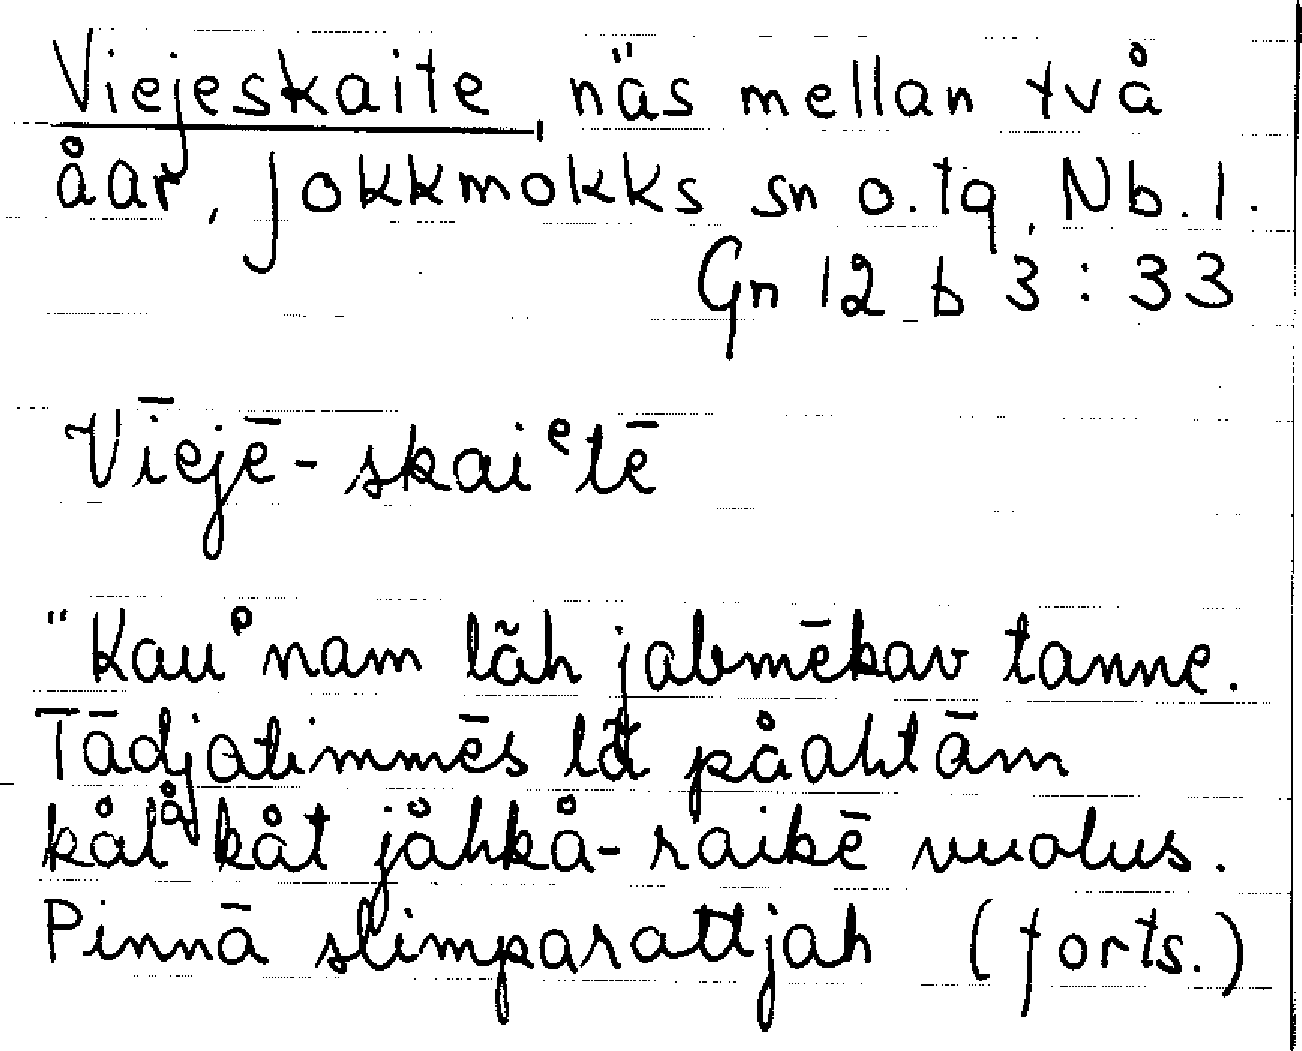 Viejeskaite, näs mellan två
åar, Jokkmokks sn o. tg, Nb. l.
Gn 12 b 3 : 33
Vīejē - skaiᵉtē
"Kauᵒnam lãh jabmēkav tanne.
Tādjatimmēs låt påahtām
kålᵃ̊kåt jåhkå-raikē vuolus.
Pinnā slimparattjah (forts.)